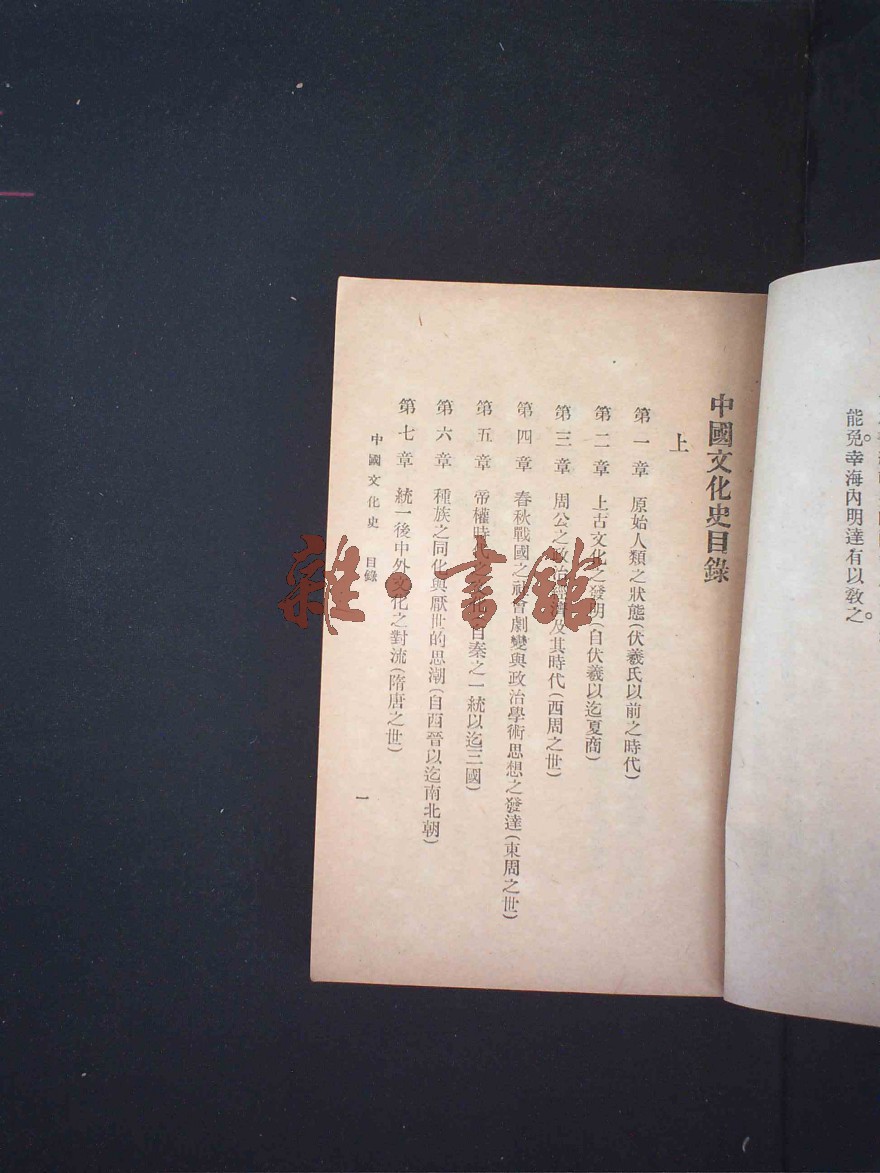 能免。幸海內明達有以敎之。
中國文化史目錄
上
第一章 原始人類之狀態(伏羲氏以前之時代)
第二章 上古文化之發明(自伏羲以迄夏商)
第三章 周公之政治經濟及其時代(西周之世)
第四章 春秋戰國之社會劇變與政治學術思想之發達(東周之世)
第五章 帝權時代之文化(自秦之一統以迄三國)
第六章 種族之同化與厭世的思潮(自西晉以迄南北朝)
第七章 統一後中外文化之對流(隋唐之世)
中國文化史 目錄
一
雜·書館